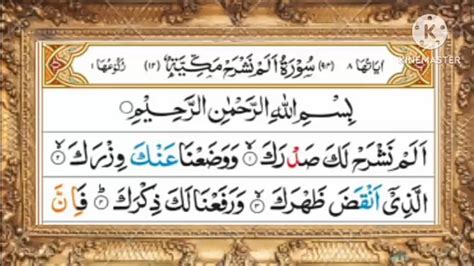 اٰيَاتُهَا ٨ (٩٤) سُوْرَةُ اَلَمْ نَشْرَحْ مَكِّيَّةٌ (١٢) رُكُوْعُهَا ١
KINEMASTER
بِسْمِ اللّٰهِ الرَّحْمٰنِ الرَّحِيْمِ
اَلَمْ نَشْرَحْ لَكَ صَدْرَكَ ۙ۝١ وَوَضَعْنَا عَنْكَ وِزْرَكَ ۙ۝٢
الَّذِىْٓ اَنْقَضَ ظَهْرَكَ ۙ۝٣ وَرَفَعْنَا لَكَ ذِكْرَكَ ؕ۝٤ فَاِنَّ